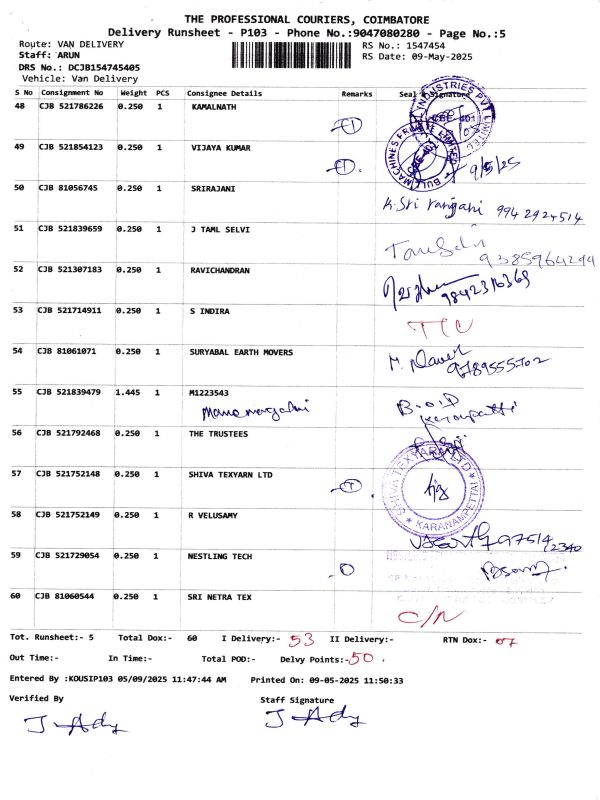 THE PROFESSIONAL COURIERS, COIMBATORE
Delivery Runsheet - P103 - Phone No.:9047080280 - Page No.:5
Route: VAN DELIVERY RS No.: 1547454
Staff: ARUN RS Date: 09-May-2025
DRS No.: DCJB154745405
Vehicle: Van Delivery
S No Consignment No Weight PCS Consignee Details Remarks Seal & Signature
48 CJB 521786226 0.250 1 KAMALNATH
49 CJB 521854123 0.250 1 VIJAYA KUMAR 9/5/25
50 CJB 81056745 0.250 1 SRIRAJANI K. Sri rangani 9942924514
51 CJB 521839659 0.250 1 J TAML SELVI 9385964294
52 CJB 521307183 0.250 1 RAVICHANDRAN 9842316369
53 CJB 521714911 0.250 1 S INDIRA
54 CJB 81061071 0.250 1 SURYABAL EARTH MOVERS
55 CJB 521839479 1.445 1 M1223543 B.O.D
56 CJB 521792468 0.250 1 THE TRUSTEES
57 CJB 521752148 0.250 1 SHIVA TEXYARN LTD SHIVA TEXYARN LTD KARANAMPETTAI
58 CJB 521752149 0.250 1 R VELUSAMY
59 CJB 521729054 0.250 1 NESTLING TECH
60 CJB 81060544 0.250 1 SRI NETRA TEX C/N
Tot. Runsheet:- 5 Total Dox:- 60 I Delivery:- 53 II Delivery:- RTN Dox:- 07
Out Time:- In Time:- Total POD:- Delvy Points:- 50.
Entered By :KOUSIP103 05/09/2025 11:47:44 AM Printed On: 09-05-2025 11:50:33
Verified By Staff Signature